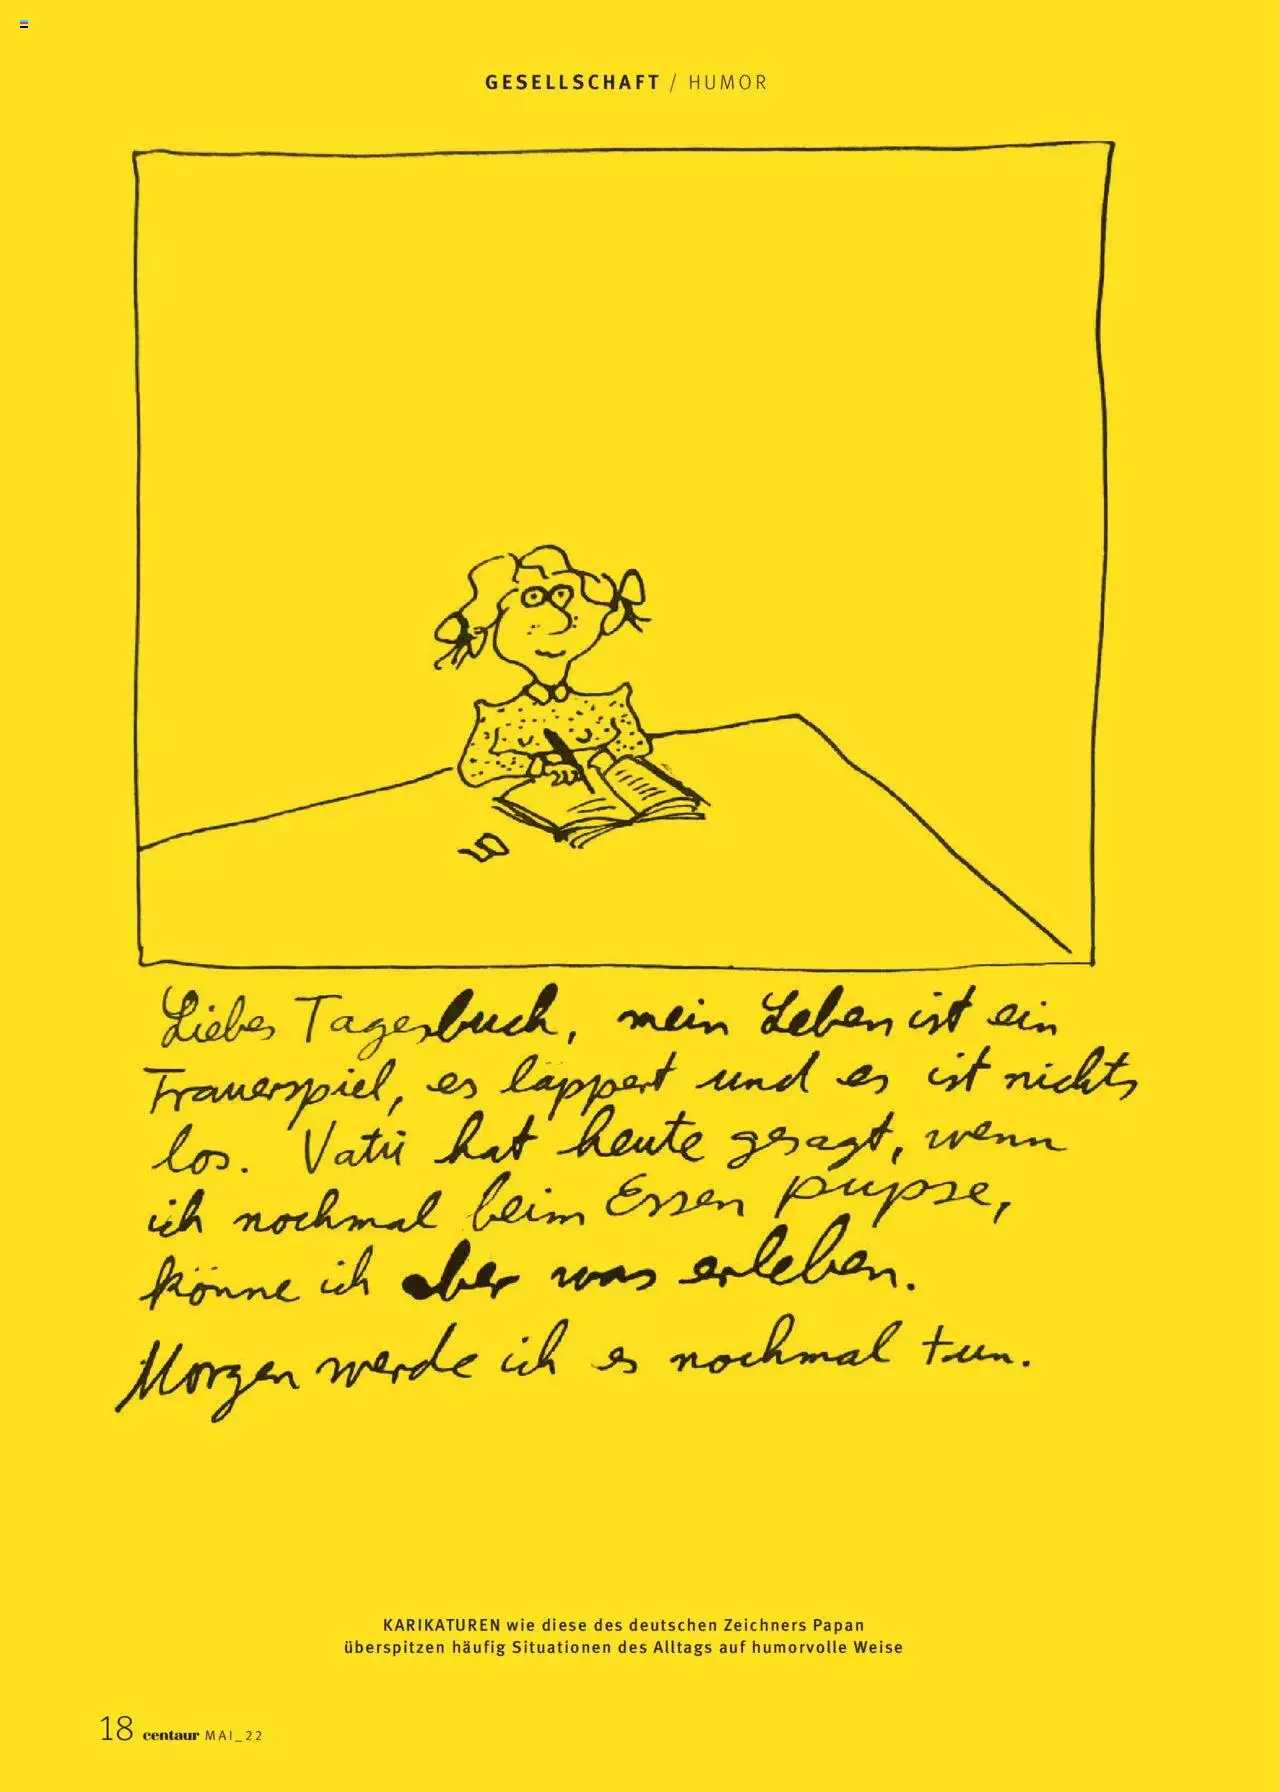 GESELLSCHAFT / HUMOR
Liebes Tagesbuch, mein Leben ist ein
Trauerspiel, es läppert und es ist nichts
los. Vati hat heute gesagt, wenn
ich nochmal beim Essen pupse,
könne ich aber was erleben.
Morgen werde ich es nochmal tun.
KARIKATUREN wie diese des deutschen Zeichners Papan
überspitzen häufig Situationen des Alltags auf humorvolle Weise
18 centaur MAI_22